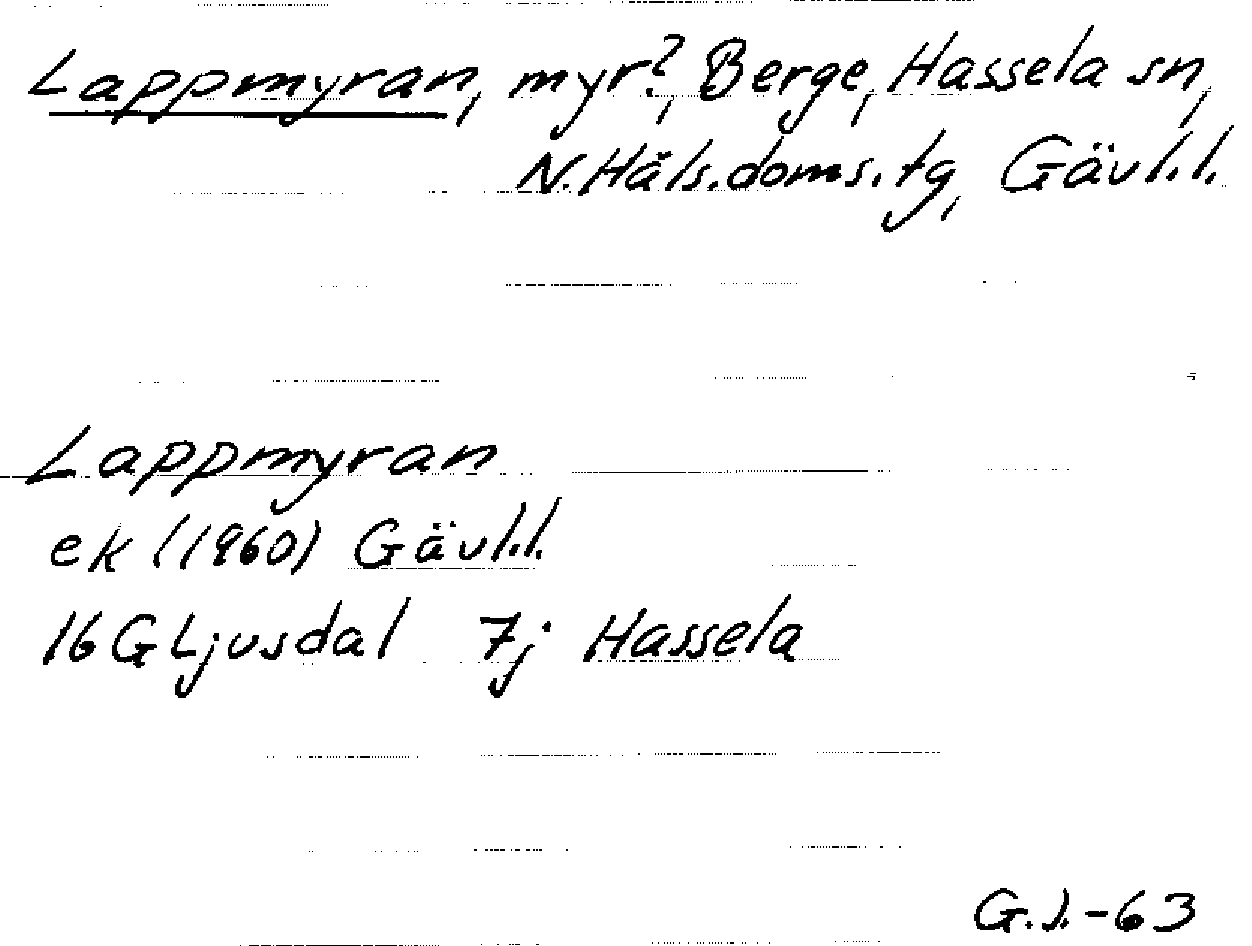 Lappmyran, myr?, Berge, Hassela sn,
N.Häls.doms.tg, Gävl.l.
Lappmyran
ek (1960) Gävl.l.
16 G Ljusdal 7j Hassela
G.J.-63